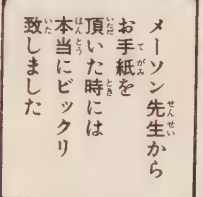 メーソン先生から
お手紙を
頂いた時には
本当にビックリ
致しました